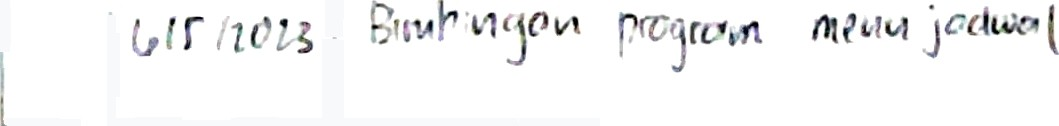 6/5/2023 Bimbingan program menu jadwal